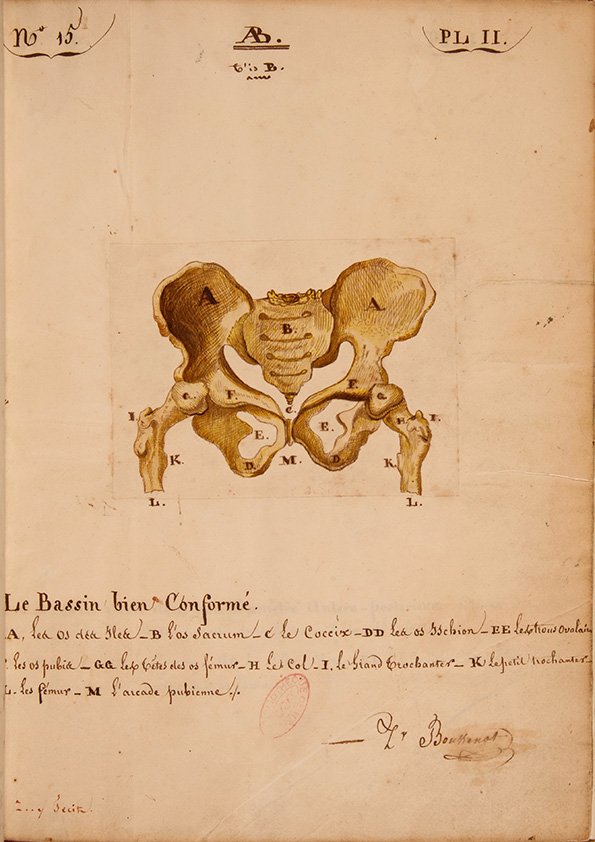 Nº 15.
AB.
B.
PL II.
A
A
B.
C
F.
F
G.
G.
I.
H
I.
E.
E.
D.
D
M.
K.
K.
L.
L.
Le Bassin bien Conformé.
A, Les os des Iles_ B l'os Sacrum_ C le Coccix_ DD Les os Ischion_ EE Les trous Ovalair
les os pubis_ GG Les têtes des os fémur_ H Le Col_ I, Le Grand trochanter_ K Le petit trochanter_
L. Les fémur_ M l'arcade pubienne